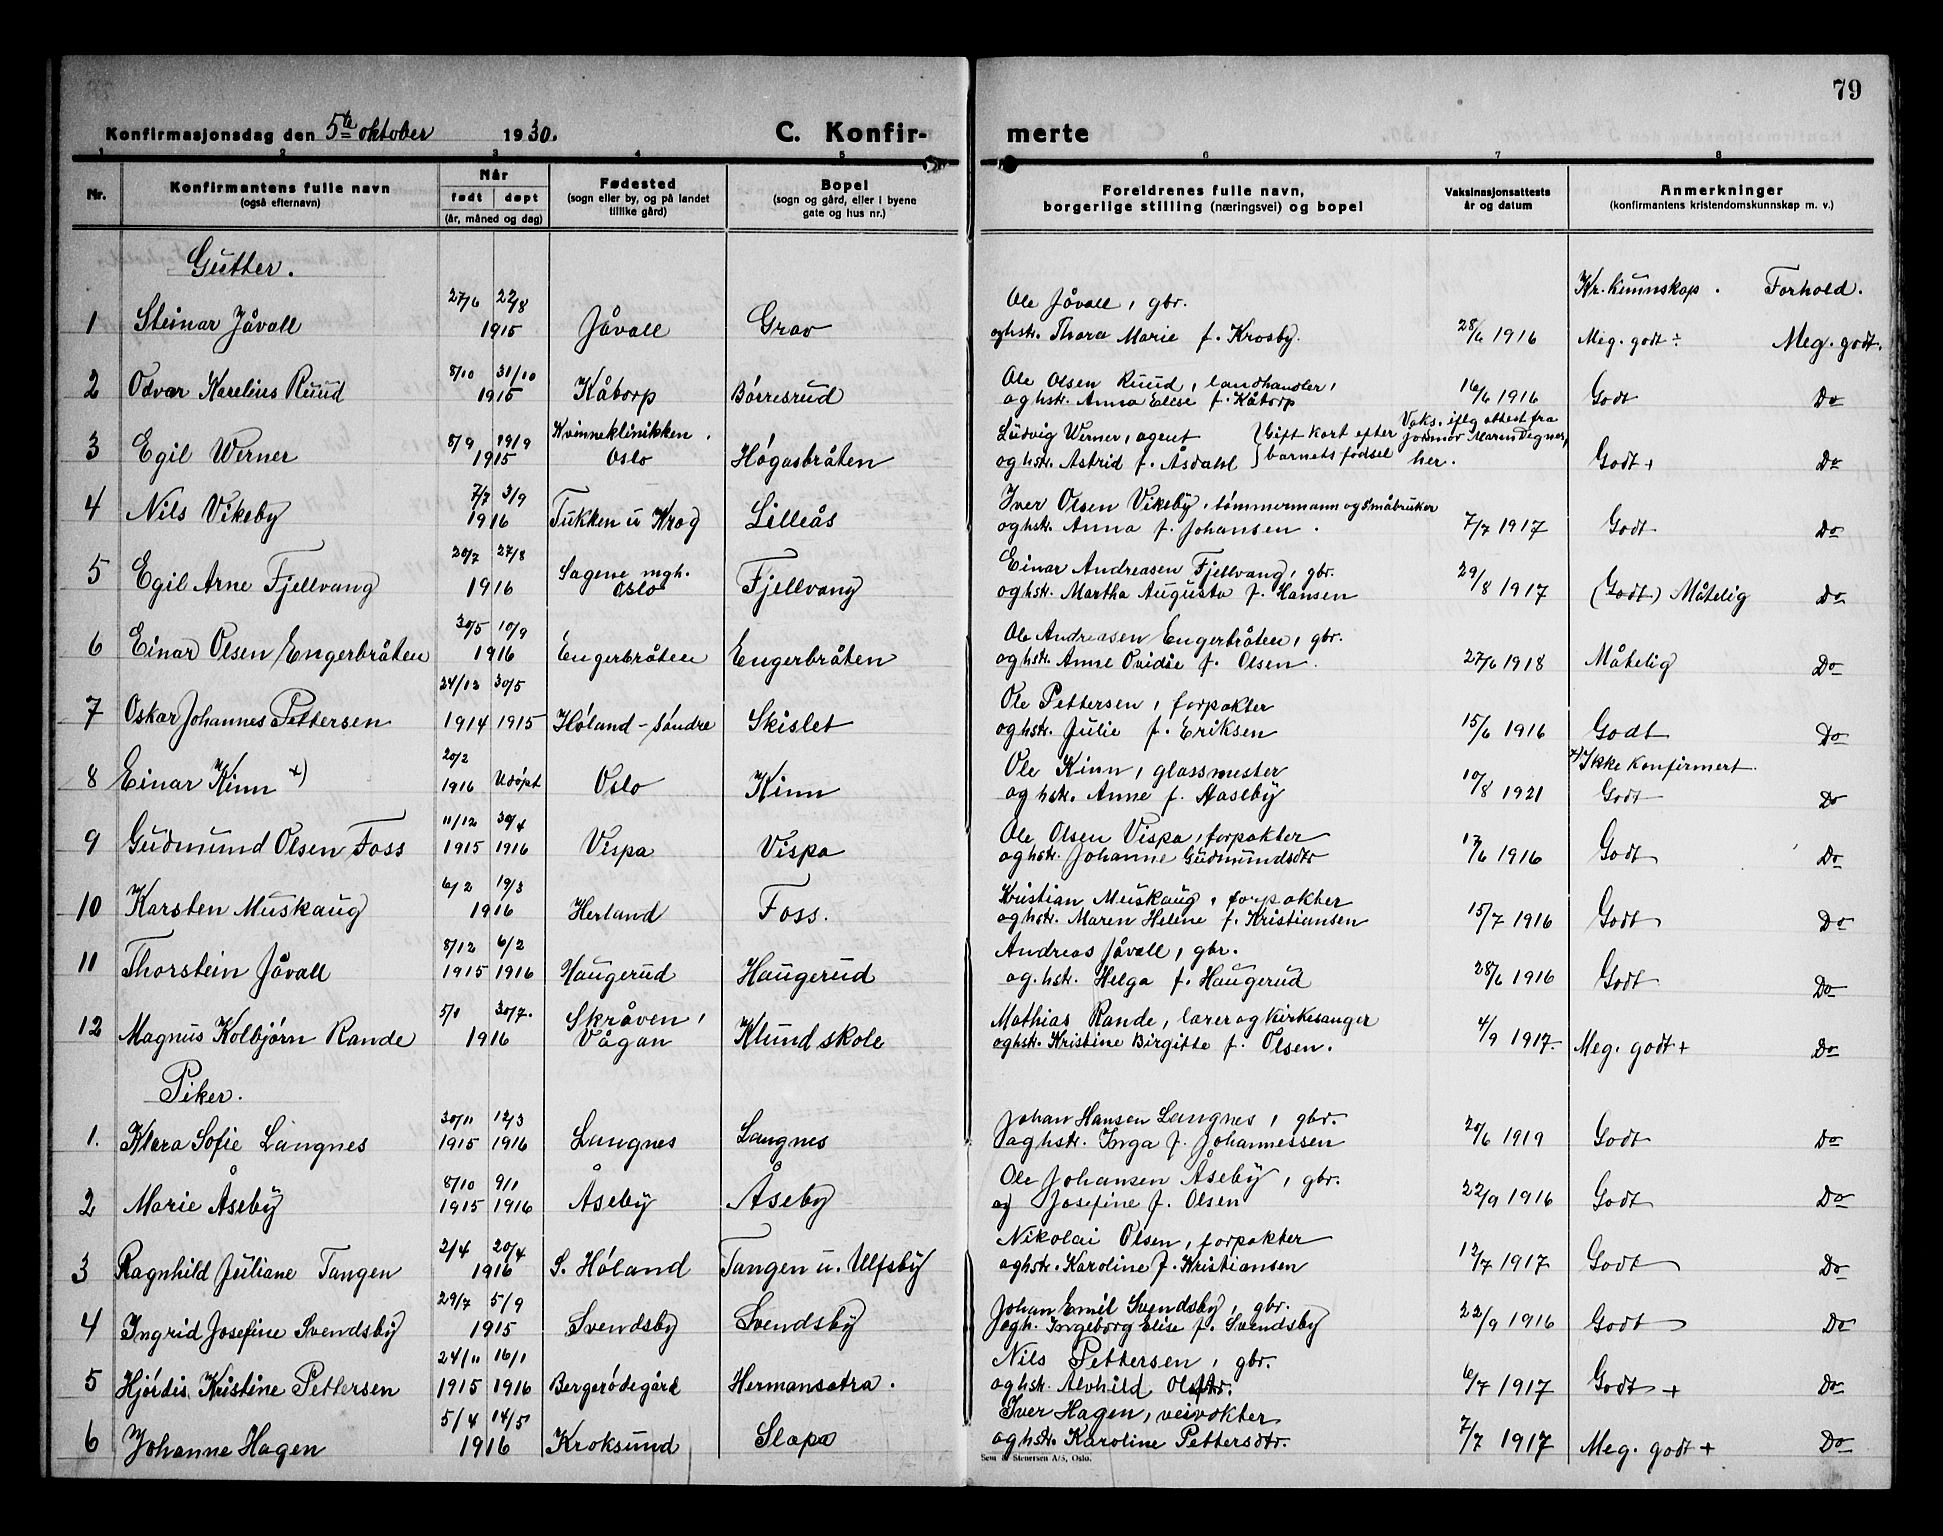 79
Konfirmasjonsdag den 5te oktober 1930. C. Konfir- merte
1 2 3 4 5 6 7 8
Nr. Konfirmantens fulle navn (også efternavn) Når født døpt (år, måned og dag) Fødested (sogn eller by, og på landet tillike gård) Bopel (sogn og gård, eller i byene gate og hus nr.) Foreldrenes fulle navn, borgerlige stilling (næringsvei) og bopel Vaksinasjonsattests år og datum Anmerkninger (konfirmantens kristendomskunnskap m. v.)
Gutter.
Kr. kunnskap. Forhold.
27/6 22/8 Ole Jåvall, gbr.
1 Steinar Jåvall 1915 Jåvall Grav oghstr. Thora Marie f. Krosby. 28/6 1916 Meg. godt ÷ Meg. godt.
8/10 31/10 Ole Olsen Ruud, landhandler,
2 Odvar Karelius Ruud 1915 Kåtorp Børresrud oghstr. Anna Elise f. Kåtorp 16/6 1916 Godt Do
8/9 19/9 Kvinneklinikken. Ludvig Werner, agent } Gift kort efter Vaks. iflg attest fra jordmor Maren Degnes,
3 Egil Werner 1915 Oslo Høgåsbråten oghstr. Astrid f. Åsdahl } barnets fødsel her. Godt + Do
7/7 3/9 Iver Olsen Vikeby, tømmermann og småbruker
4 Nils Vikeby 1916 Tukken u Krog Lilleås oghstr. Anna f. Johansen. 7/7 1917 Godt Do
20/7 27/8 Sagene mgh. Einar Andreasen Fjellvang, gbr.
5 Egil Arne Fjellvang 1916 Oslo Fjellvang oghstr. Martha Augusta f. Hansen 29/8 1917 (Godt) Måtelig Do
30/5 10/9 Ole Andreasen Engerbråten, gbr.
6 Einar Olsen Engerbråten 1916 Engerbråten Engerbråten oghstr. Anne Ovidie f. Olsen. 27/6 1918 Måtelig Do
24/12 30/5 Ole Pettersen, forpakter
7 Oskar Johannes Pettersen 1914 1915 Høland - søndre Skislet oghstr. Julie f. Eriksen 15/6 1916 Godt Do
20/2 Ole Kinn, glassmester x) Ikke konfirmert
8 Einar Kinn x) 1916 Udøpt Oslo Kinn og hstr. Anne f. Aaseby 10/8 1921 Godt Do
11/12 30/4 Ole Olsen Vispa, forpakter
9 Gudmund Olsen Foss 1915 1916 Vispa Vispa oghstr. Johanne Gudmundsdtr 17/6 1916 Godt Do
6/2 19/3 Kristian Muskaug, forpakter
10 Karsten Muskaug 1916 Herland Foss. oghstr. Maren Helene f. Kristiansen 15/7 1916 Godt Do
8/12 6/2 Andreas Jåvall, gbr.
11 Thorstein Jåvall 1915 1916 Haugerud Haugerud og. hstr. Helga f. Haugerud 28/6 1916 Godt Do
5/1 30/7. Skråven, Mathias Rande, lærer og kirkesanger
12 Magnus Kolbjørn Rande 1916 Vågan Klund skole oghstr. Kristine Birgitte f. Olsen. 4/9 1917. Meg. godt + Do
Piker.
30/11 12/3 Johan Hansen Langnes, gbr.
1. Klara Sofie Langnes 1915 1916 Langnes Langnes oghstr. Inga f. Johannessen 20/6 1919 Godt Do
8/10 9/1 Ole Johansen Åseby, gbr.
2 Marie Åseby 1915 1916 Åseby Åseby og Josefine f. Olsen 22/9 1916 Godt Do
2/4 20/4 Nikolai Olsen, forpakter
3 Ragnhild Juliane Tangen 1916 S. Høland Tangen u. Ulfsby oghstr. Karoline f. Kristiansen 12/7 1917 Godt Do
29/7 5/9 Johan Emil Svendsby, gbr.
4 Ingrid Josefine Svendsby 1915 Svendsby Svendsby ogh. Ingeborg Elise f. Svendsby 22/9 1916 Godt Do
24/11 16/1 Nils Pettersen, gbr.
5 Hjørdis Kristine Pettersen 1915 1916 Bergerødegård Hermansætra. oghstr. Alvhild Olsdtr. 6/7 1917 Godt + Do
5/4 14/5 Iver Hagen, veivokter
6 Johanne Hagen 1916 Kroksund Slæpa oghstr. Karoline Pettersdtr. 7/7 1917 Meg. godt + Do
Sem & Stenersen A/S, Oslo.